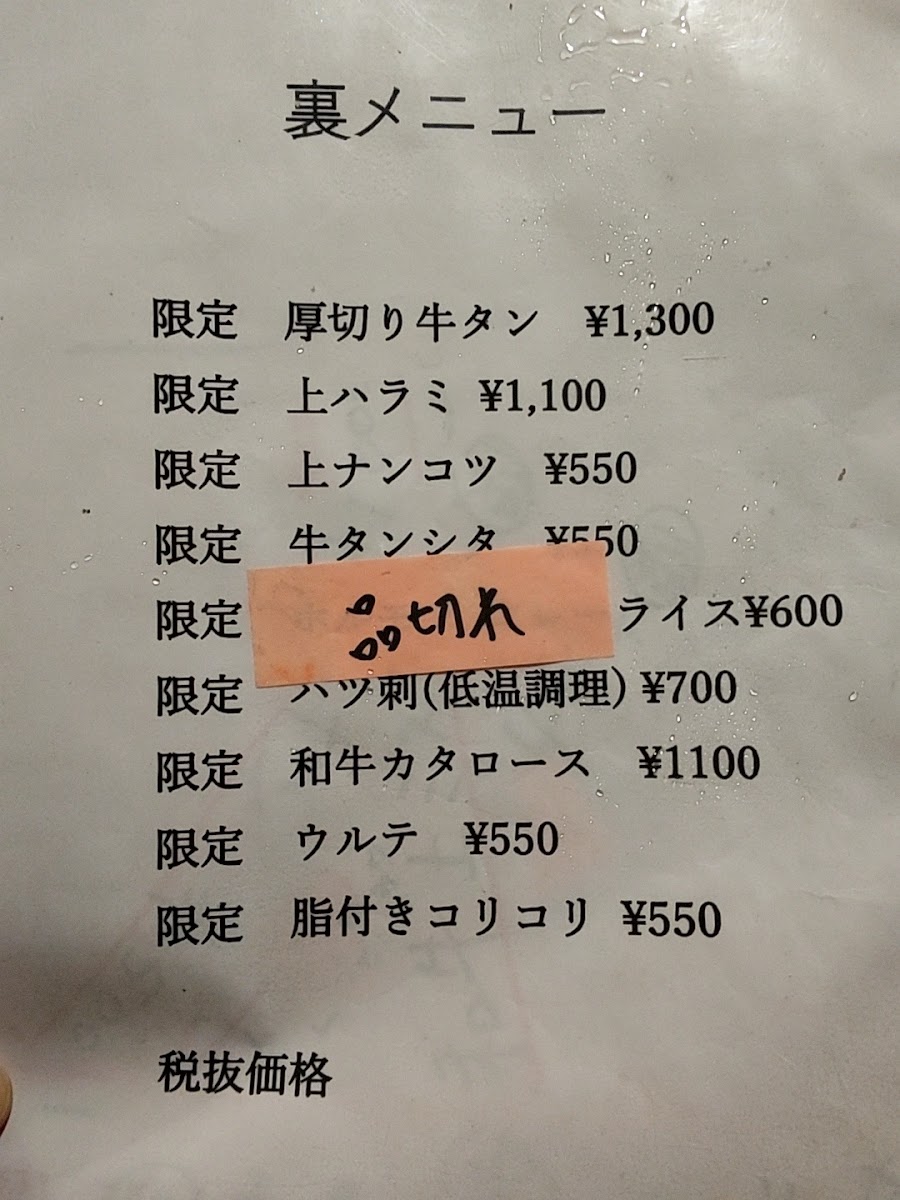 裏メニュー
限定 厚切り牛タン ¥1,300
限定 上ハラミ ¥1,100
限定 上ナンコツ ¥550
限定 牛タンシタ ¥550
限定 品切れ ライス¥600
限定 ハツ刺(低温調理) ¥700
限定 和牛カタロース ¥1100
限定 ウルテ ¥550
限定 脂付きコリコリ ¥550
税抜価格